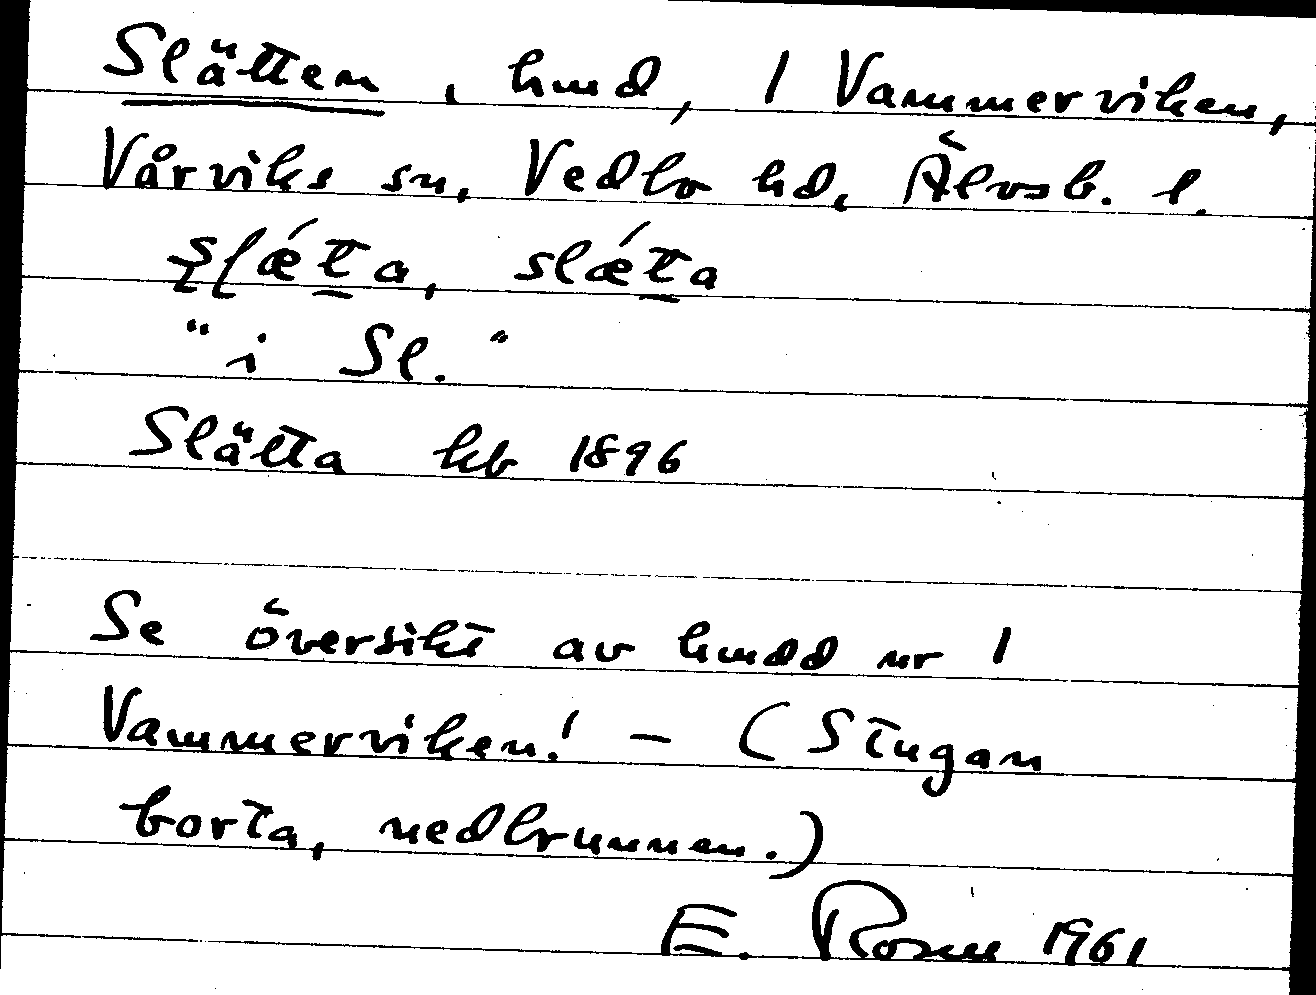 Slätten, hmd, 1 Vammerviken,
Vårviks sn, Vedbo hd, Älvsb. l.
slǽta, slǽta
"i Sl."
Slätta kb 1896
Se översikt av hmdd nr 1
Vammerviken! – (Stugan
borta, nedbrunnen.)
E. Rosen 1961